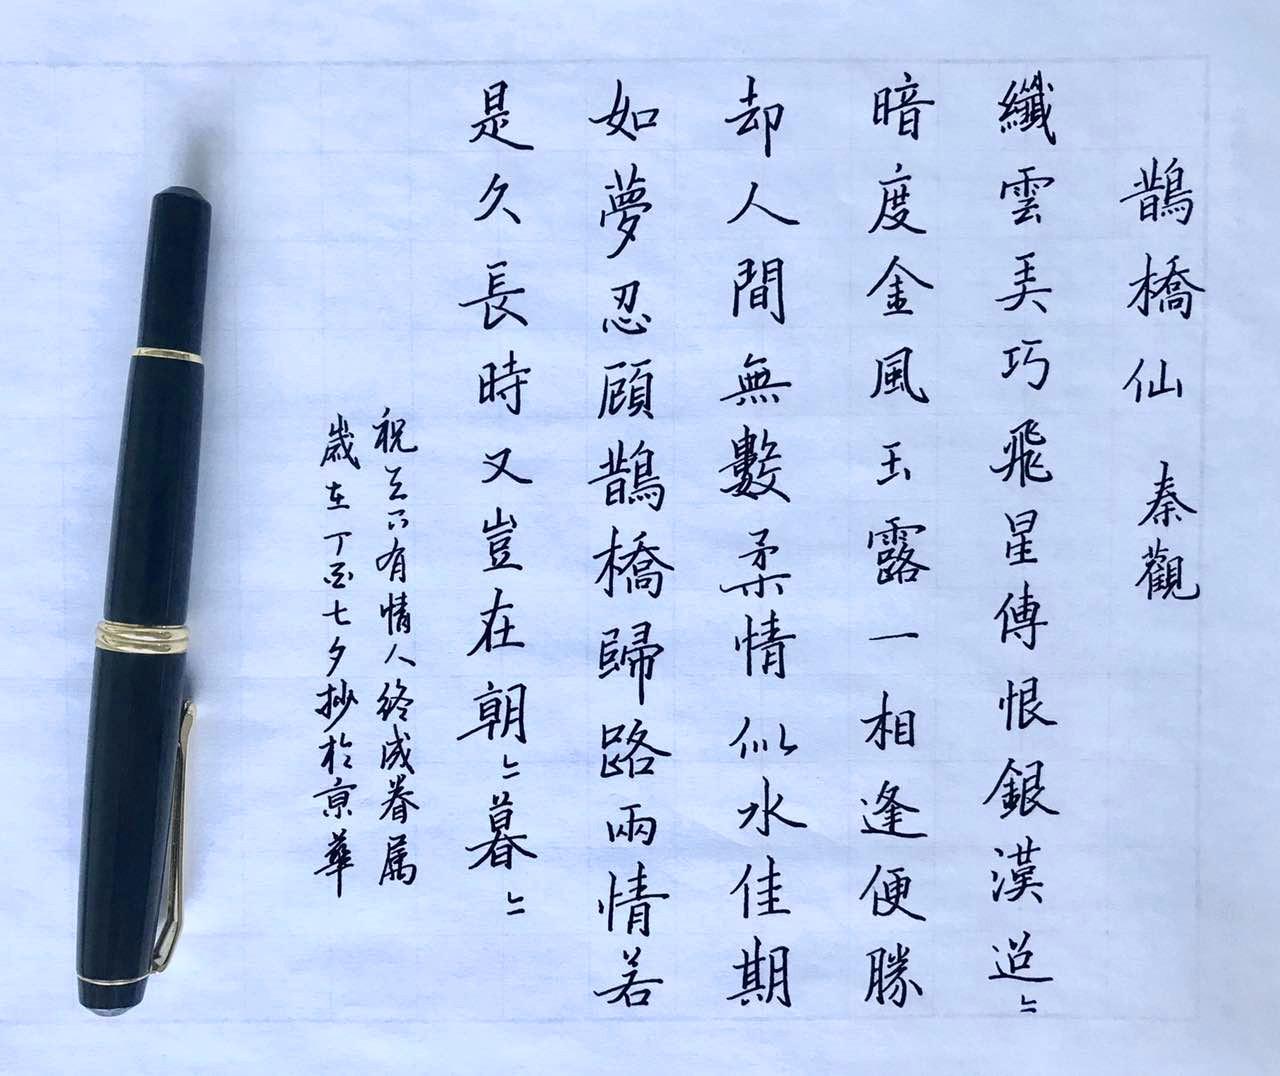 鵲橋仙 秦觀
纖雲弄巧飛星傳恨銀漢迢〻
暗度金風玉露一相逢便勝
却人間無數柔情似水佳期
如夢忍顧鵲橋歸路兩情若
是久長時又豈在朝〻暮〻
祝天下有情人終成眷属
歲在丁酉七夕抄於京華